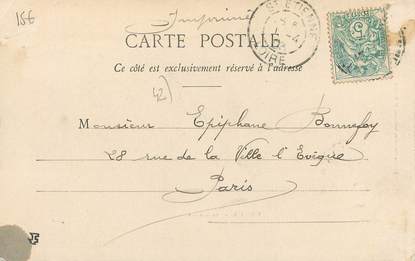 15€
Imprimé
ST ETIENNE
LOIRE
5
CARTE POSTALE
Ce côté est exclusivement réservé à l'adresse
42)
Monsieur Epiphane Bonnefoy
28 rue de la Ville l'Evêque
Paris